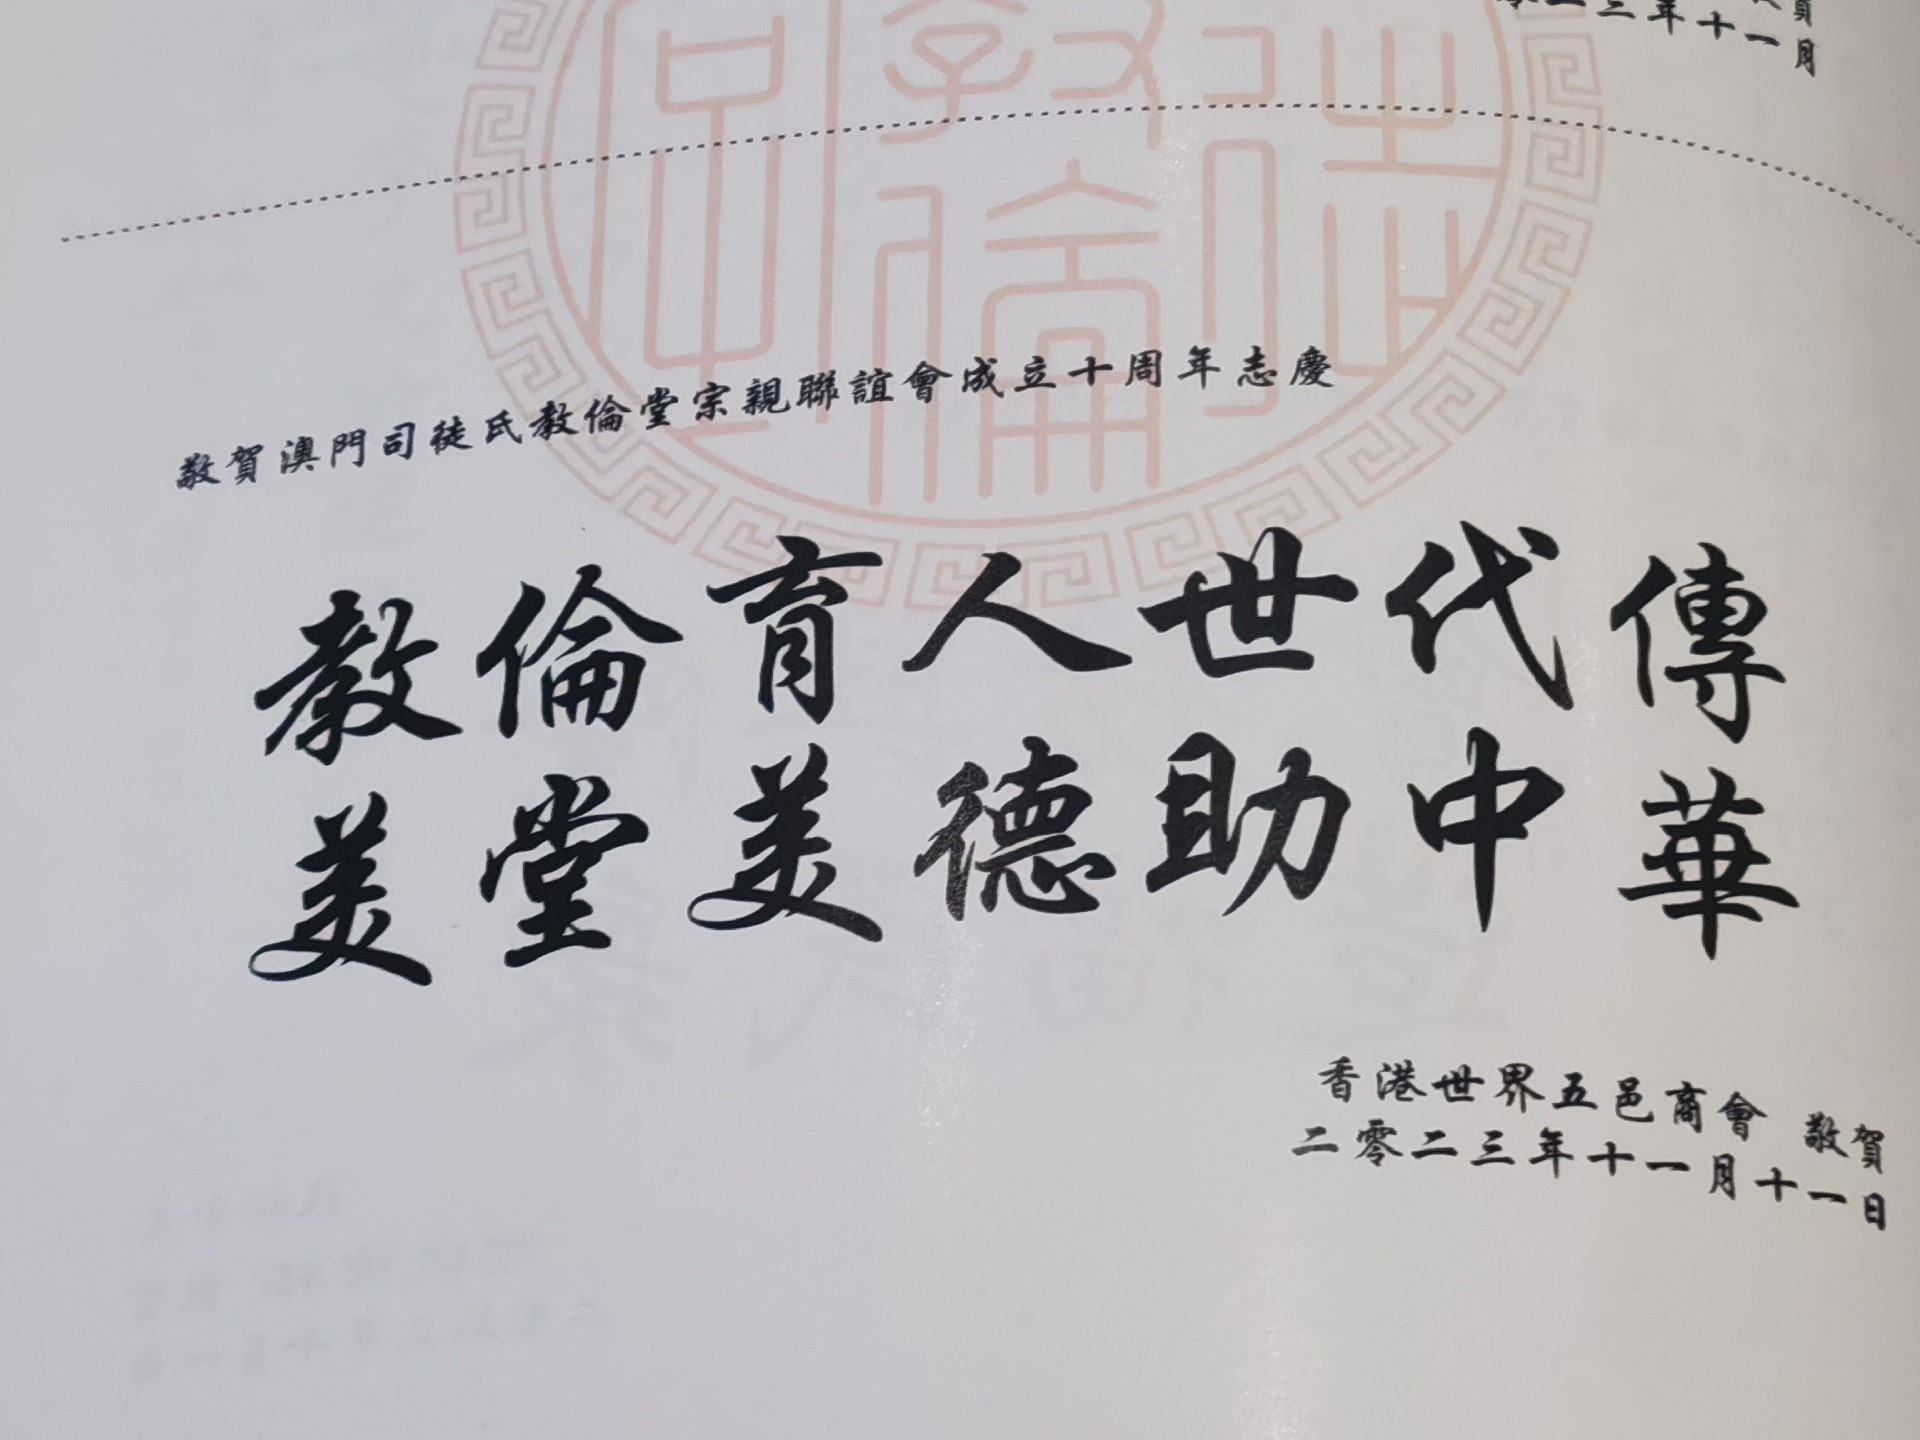 年十一月
敬賀澳門司徒氏教倫堂宗親聯誼會成立十周年志慶
教倫育人世代傳
美堂美德助中華
香港世界五邑商會 敬賀
二零二三年十一月十一日